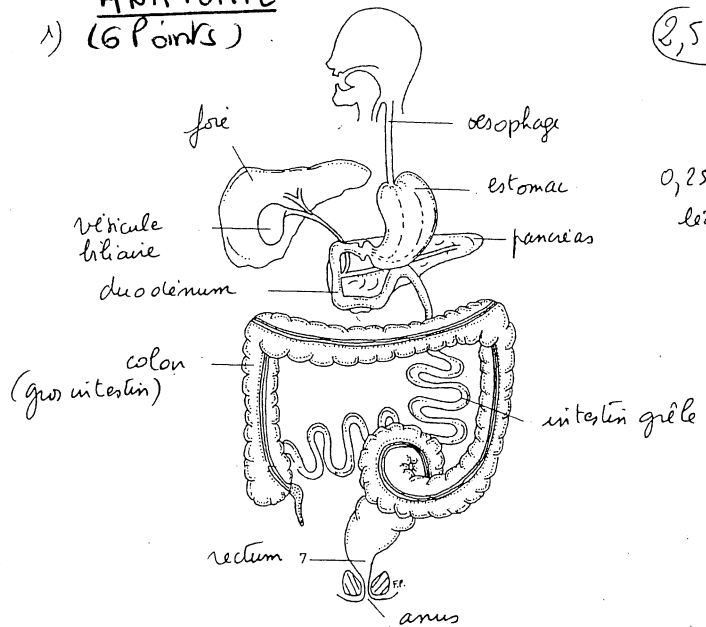 ANATOMIE
1) (6 Points)
2,5
foie
oesophage
estomac
0,25
vésicule
biliaire
pancréas
duodénum
colon
(gros intestin)
intestin grêle
rectum
F.P.
anus